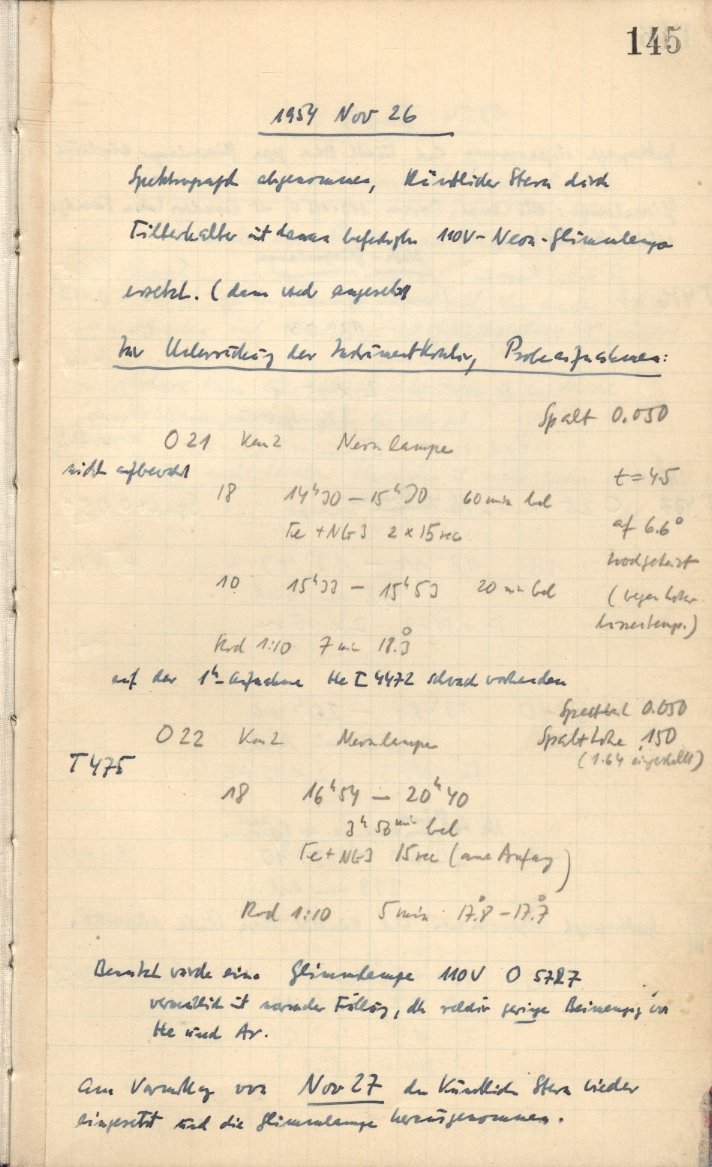 145
1954 Nov 26
Spektrograph abgenommen, Künstlicher Stern durch
Filterhalter mit daran befestigter 110V-Neon-Glimmlampe
ersetzt. (dann und angesetzt
Zur Untersuchung der Instrumentkontur, Probeaufnahmen:
Spalt 0.050
O 21 Kam 2 Neonlampe
nicht aufbewahrt
t = 4.5
18 14ʰ30 – 15ʰ30 60 min bel
auf 6.6°
Fe + NG3 2 × 15 sec
hochgeheizt
10 15ʰ33 – 15ʰ53 20 min bel
(wegen hoher
Wassertemp.)
Rod 1:10 7 min 18.°3
auf der 1ʰ-Aufnahme He I 4472 schwach vorhanden
0.050
O 22 Kam 2 Neonlampe
Spalthöhe 150
(1.64 eingestellt)
T 475
18 16ʰ54 – 20ʰ40
bel
Fe + NG3 15 sec (am Anfang)
Rod 1:10 5 min 17.°8 – 17.°7
Benützt wurde eine Glimmlampe 110V O 5727
vermutlich mit normaler Füllung, dh relativ geringe Beimengung von
He und Ar.
Am Vormittag von Nov 27 den Künstlichen Stern wieder
eingesetzt und die Glimmlampe herausgenommen.